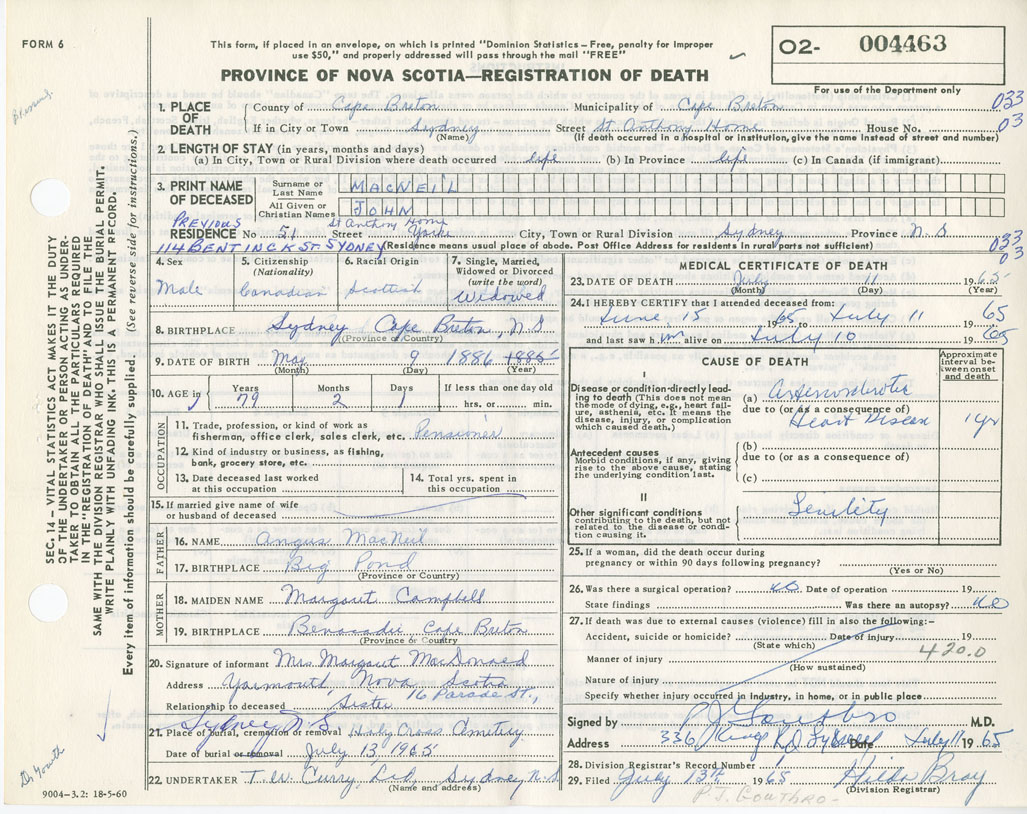 FORM 6
This form, if placed in an envelope, on which is printed "Dominion Statistics – Free, penalty for improper
use $50," and properly addressed will pass through the mail "FREE"
PROVINCE OF NOVA SCOTIA—REGISTRATION OF DEATH
02- 004463
For use of the Department only
1. PLACE OF DEATH
County of Cape Breton Municipality of Cape Breton 033
If in City or Town Sydney Street St Anthony Home House No. 03
(Name) (If death occurred in a hospital or Institution, give the name instead of street and number)
2. LENGTH OF STAY (in years, months and days)
(a) In City, Town or Rural Division where death occurred life (b) In Province life (c) In Canada (if immigrant)
3. PRINT NAME OF DECEASED
Surname or Last Name MACNEIL
All Given or Christian Names JOHN
PREVIOUS St Anthony Home
RESIDENCE No 51 Street Yorke City, Town or Rural Division Sydney Province N S
114 BENTINCK ST SYDNEY (Residence means usual place of abode. Post Office Address for residents in rural parts not sufficient) 033
03
4. Sex
Male
5. Citizenship
(Nationality)
Canadian
6. Racial Origin
Scottish
7. Single, Married,
Widowed or Divorced
(write the word)
Widowed
8. BIRTHPLACE Sydney Cape Breton, N.S
(Province or Country)
9. DATE OF BIRTH May 9 1886 1885
(Month) (Day) (Year)
10. AGE in
Years Months Days If less than one day old
79 2 1 hrs. or min.
OCCUPATION
11. Trade, profession, or kind of work as
fisherman, office clerk, sales clerk, etc. Pensioner
12. Kind of industry or business, as fishing,
bank, grocery store, etc.
13. Date deceased last worked
at this occupation
14. Total yrs. spent in
this occupation
15. If married give name of wife
or husband of deceased
FATHER
16. NAME Angus MacNeil
17. BIRTHPLACE Big Pond
(Province or Country)
MOTHER
18. MAIDEN NAME Margaret Campbell
19. BIRTHPLACE Benacadie Cape Breton
(Province or Country)
20. Signature of informant Mrs Margaret MacDonald
Address Yarmouth, Nova Scotia
16 Parade St.,
Relationship to deceased Sister
Sydney N.S
21. Place of burial, cremation or removal Holy Cross Cemetery
Date of burial or removal July 13 1965
22. UNDERTAKER T. W. Curry, Ltd, Sydney N.S
(Name and address)
9004-3.2: 18-5-60
MEDICAL CERTIFICATE OF DEATH
23. DATE OF DEATH July 11 1965
(Month) (Day) (Year)
24. I HEREBY CERTIFY that I attended deceased from:
June 15 1965 to July 11 1965
and last saw him alive on July 10 1965
CAUSE OF DEATH
Approximate
interval be-
tween onset
and death
I
Disease or condition directly lead-
ing to death (This does not mean
the mode of dying, e.g., heart fail-
ure, asthenia, etc. It means the
disease, injury, or complication
which caused death.)
(a) Arteriosclerotic
due to (or as a consequence of)
Heart Disease 1 yr
Antecedent causes
Morbid conditions, if any, giving
rise to the above cause, stating
the underlying condition last.
(b)
due to (or as a consequence of)
(c)
II
Other significant conditions
contributing to the death, but not
related to the disease or condi-
tion causing it.
Senility
25. If a woman, did the death occur during
pregnancy or within 90 days following pregnancy?
(Yes or No)
26. Was there a surgical operation? no Date of operation 19
State findings Was there an autopsy? no
27. If death was due to external causes (violence) fill in also the following:–
Accident, suicide or homicide? Date of injury 19
(State which) 420.0
Manner of injury
(How sustained)
Nature of injury
Specify whether injury occurred in industry, in home, or in public place
Signed by P J Gouthro M.D.
Address 336 Kings Rd Sydney Date July 11 1965
28. Division Registrar's Record Number
29. Filed July 13th 1965 Hilda Bray
(Division Registrar)
P. J. Gouthro -
SEC. 14 – VITAL STATISTICS ACT MAKES IT THE DUTY
OF THE UNDERTAKER OR PERSON ACTING AS UNDER-
TAKER TO OBTAIN ALL THE PARTICULARS REQUIRED
IN THE "REGISTRATION OF DEATH" AND TO FILE THE
SAME WITH THE DIVISION REGISTRAR WHO SHALL ISSUE THE BURIAL PERMIT.
WRITE PLAINLY WITH UNFADING INK. THIS IS A PERMANENT RECORD.
Every item of information should be carefully supplied. (See reverse side for instructions.)